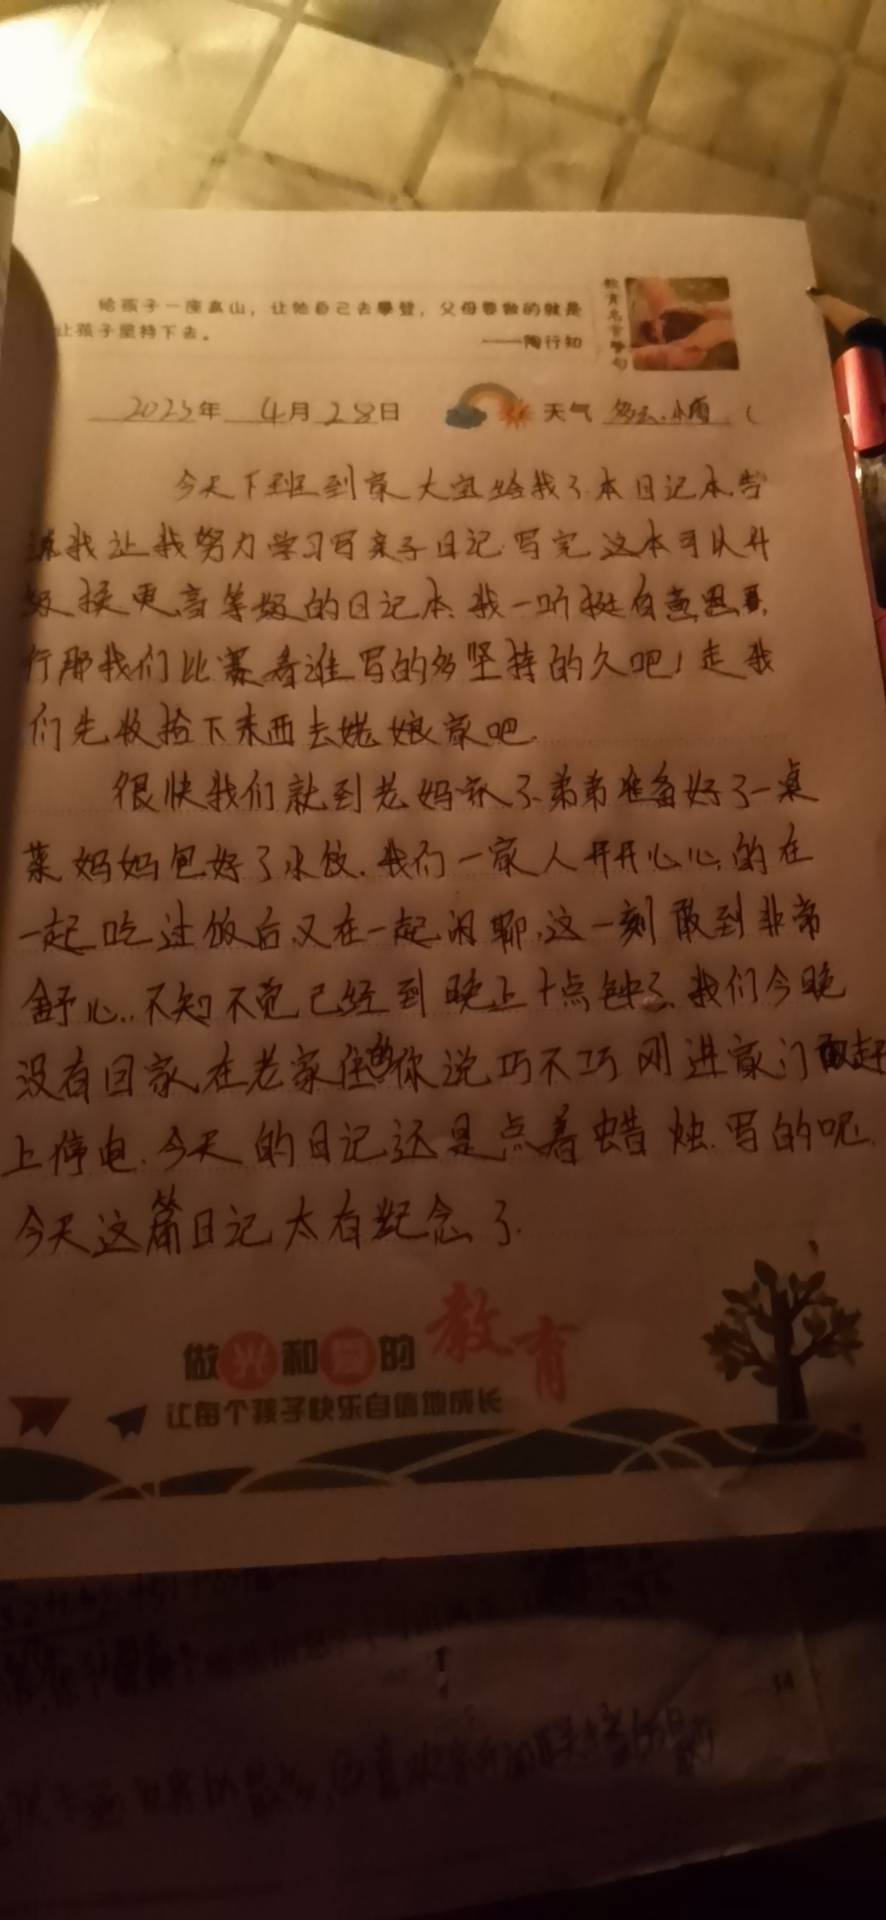 给孩子一座高山，让他自己去攀登，父母要做的就是
让孩子坚持下去。
——陶行知
教育名言警句
2023年 4月28日 天气 多云.小雨
今天下班到家大宝给我了.本日记本.告
诉我让我努力学习写亲子日记.写完这本可以升
级换更高等级的日记本.我一听挺有意思.
行那我们比赛看谁写的多坚持的久吧！走我
们先收拾下东西去姥娘家吧.
很快我们就到老妈家了.弟弟准备好了一桌
菜妈妈包好了水饺.我们一家人开开心心的在
一起吃过饭后.又在一起闲聊.这一刻敢到非常
舒心..不知不觉已经到晚上十点钟了.我们今晚
没有回家.在老家住的你说巧不巧刚进家门赶
上停电.今天的日记还是点着蜡烛.写的呢.
今天这篇日记太有纪念了.
做光和爱的教育
让每个孩子快乐自信地成长